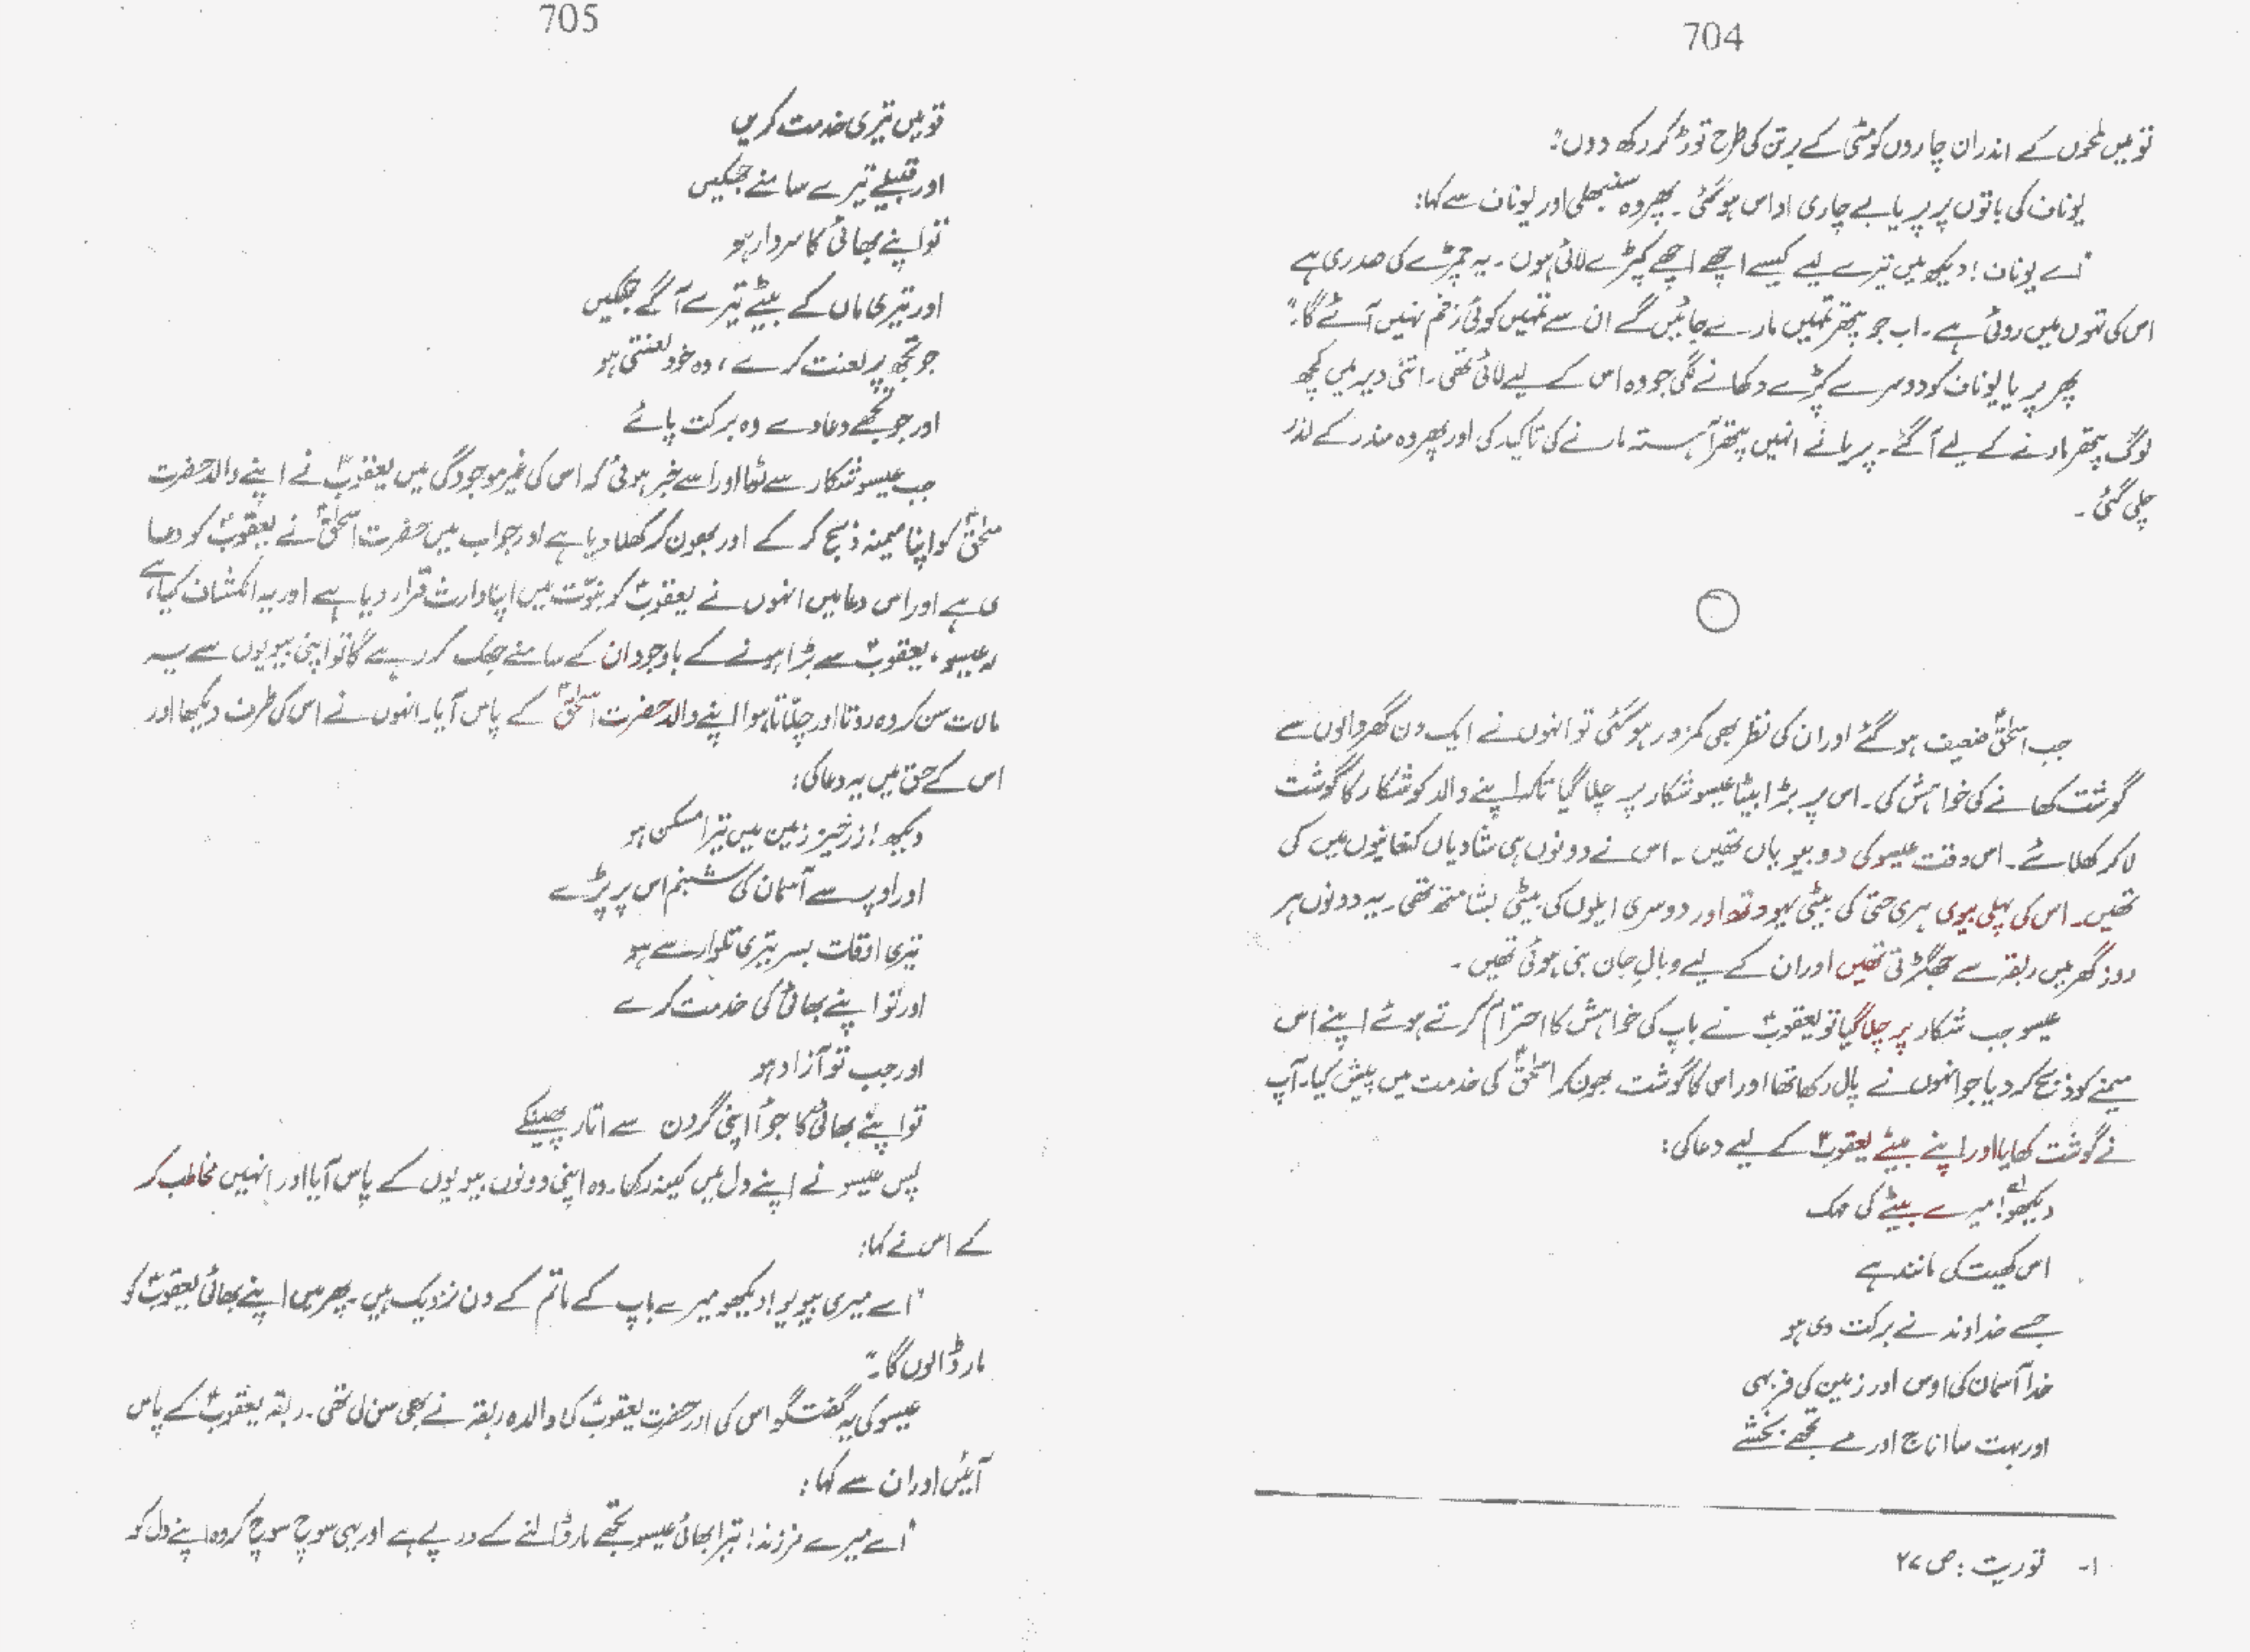 704
تو میں لمحوں کے اندر ان چاروں کو مٹی کے برتن کی طرح توڑ کر رکھ دوں"۔
یوناف کی باتوں پر پریا بے چاری اداس ہو گئی۔ پھر وہ سنبھلی اور یوناف سے کہا:
"اے یوناف! دیکھ میں تیرے لیے کیسے اچھے اچھے کپڑے لائی ہوں۔ یہ چمڑے کی صدری ہے
اس کی تہوں میں روئی ہے۔ اب جو پتھر تمہیں مارے جائیں گے ان سے تمہیں کوئی زخم نہیں آئے گا۔"
پھر پریا یوناف کو دوسرے کپڑے دکھانے لگی جو وہ اس کے لیے لائی تھی۔ اتنی دیر میں کچھ
لوگ پتھر مارنے کے لیے آ گئے۔ پریا نے انہیں پتھر آہستہ مارنے کی تاکید کی اور پھر وہ مندر کے اندر
چلی گئی۔
جب اسحٰقؑ ضعیف ہو گئے اور ان کی نظر بھی کمزور ہو گئی تو انہوں نے ایک دن گھر والوں سے
گوشت کھانے کی خواہش کی۔ اس پر بڑا بیٹا عیسو شکار پر چلا گیا تاکہ اپنے والد کو شکار کا گوشت
لا کر کھلائے۔ اس وقت عیسو کی دو بیویاں تھیں۔ اس نے دونوں ہی شادیاں کنعانیوں میں کی
تھیں۔ اس کی پہلی بیوی بیری حتی کی بیٹی یہودتھ اور دوسری ایلوں کی بیٹی بشامتھ تھی۔ یہ دونوں ہر
روز گھر میں ربقہ سے جھگڑتی تھیں اور ان کے لیے وبالِ جان بنی ہوئی تھیں۔
عیسو جب شکار پر چلا گیا تو یعقوبؑ نے باپ کی خواہش کا احترام کرتے ہوئے اپنے اس
میمنے کو ذبح کر دیا جو انہوں نے پال رکھا تھا اور اس کا گوشت بھون کر اسحٰقؑ کی خدمت میں پیش کیا۔ آپ
نے گوشت کھایا اور اپنے بیٹے یعقوبؑ کے لیے دعا کی:
دیکھو!۱ میرے بیٹے کی مہک
اس کھیت کی مانند ہے
جسے خداوند نے برکت دی ہو
خدا آسمان کی اوس اور زمین کی فربہی
اور بہت سا اناج اور مے تجھے بخشے
۱۔ توریت: ص ۲۷
705
قومیں تیری خدمت کریں
اور قبیلے تیرے سامنے جھکیں
تو اپنے بھائی کا سردار ہو
اور تیری ماں کے بیٹے تیرے آگے جھکیں
جو تجھ پر لعنت کرے، وہ خود لعنتی ہو
اور جو تجھے دعا دے وہ برکت پائے
جب عیسو شکار سے لوٹا اور اسے خبر ہوئی کہ اس کی غیر موجودگی میں یعقوبؑ نے اپنے والد حضرت
سحٰقؑ کو اپنا میمنہ ذبح کر کے اور بھون کر کھلا دیا ہے اور جواب میں حضرت اسحٰقؑ نے یعقوبؑ کو دعا
ی ہے اور اس دعا میں انہوں نے یعقوبؑ کو نبوّت میں اپنا وارث قرار دیا ہے اور یہ انکشاف کیا ہے
لہ عیسو، یعقوبؑ سے بڑا ہونے کے باوجود ان کے سامنے جھک کر رہے گا تو اپنی بیویوں سے یہ
مالات سن کر وہ روتا اور چلّاتا ہوا اپنے والد حضرت اسحٰقؑ کے پاس آیا۔ انہوں نے اس کی طرف دیکھا اور
اس کے حق میں یہ دعا کی:
دیکھ! زرخیز زمین میں تیرا مسکن ہو
اور اوپر سے آسمان کی شبنم اس پر پڑے
تیری اوقات بسر تیری تلوار سے ہو
اور تو اپنے بھائی کی خدمت کرے
اور جب تو آزاد ہو
تو اپنے بھائی کا جُوا اپنی گردن سے اتار پھینکے
پس عیسو نے اپنے دل میں کینہ رکھا۔ وہ اپنی دونوں بیویوں کے پاس آیا اور انہیں مخاطب کر
کے اس نے کہا:
"اے میری بیویو! دیکھو میرے باپ کے ماتم کے دن نزدیک ہیں۔ پھر میں اپنے بھائی یعقوبؑ کو
مار ڈالوں گا۔"
عیسو کی یہ گفتگو اس کی اور حضرت یعقوبؑ کی والدہ ربقہ نے بھی سن لی تھی۔ ربقہ یعقوبؑ کے پاس
آئیں اور ان سے کہا:
"اے میرے فرزند! تیرا بھائی عیسو تجھے مار ڈالنے کے درپے ہے اور یہی سوچ سوچ کر وہ اپنے دل کو